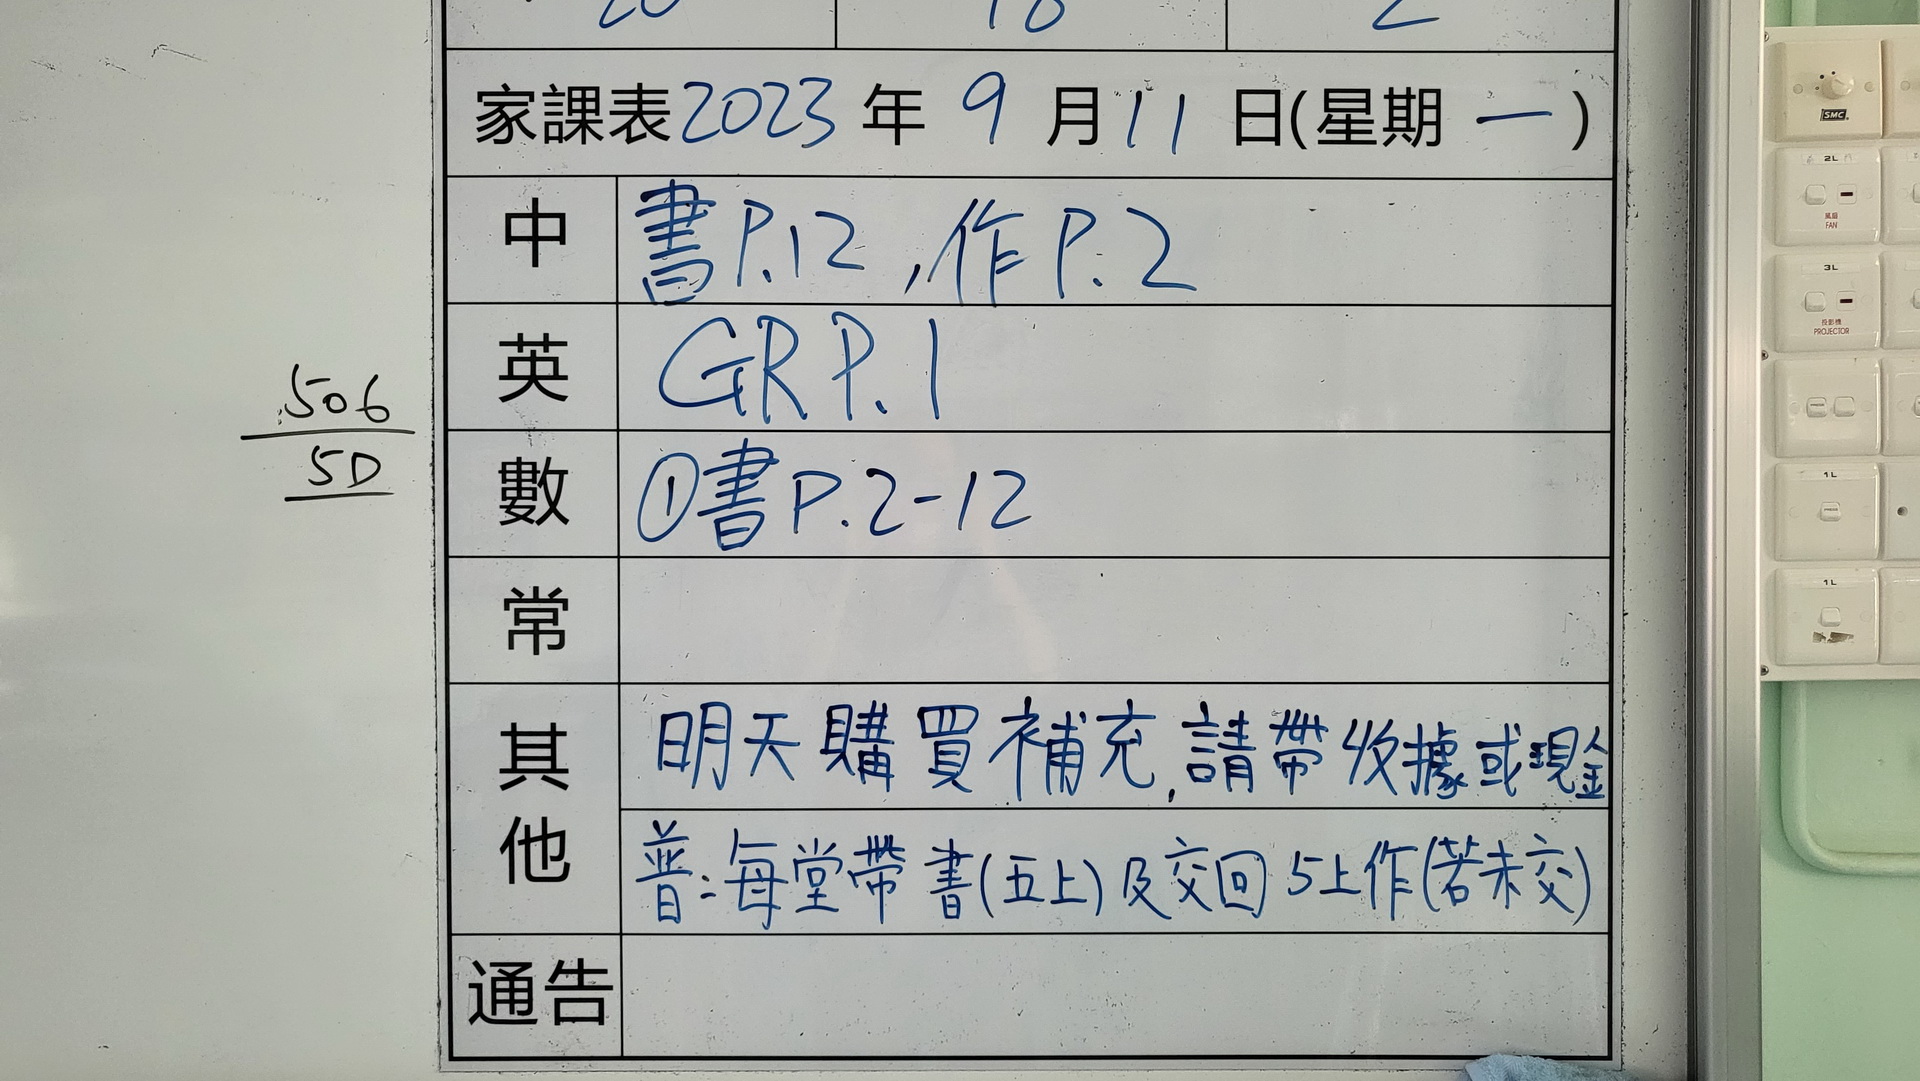 20 18 2
家課表2023年9月11日(星期一)
中 書P.12,作P.2
英 GR P.1
506
5D
數 ①書P.2-12
常
其他
明天購買補充,請帶收據或現金
普:每堂帶書(五上)及交回5上作(若未交)
通告
SMC
2L
風扇
FAN
3L
投影機
PROJECTOR
1L
1L